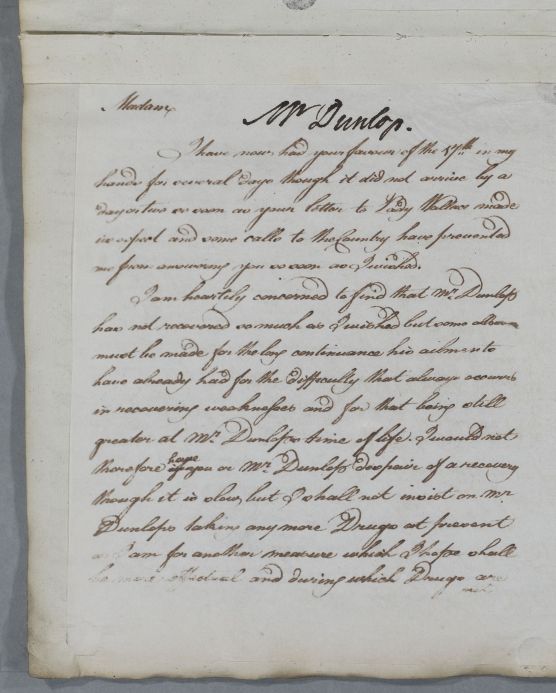 Madam
Mr Dunlop.
I have now had your favour of the 17th in my
hands for several days though it did not arrive by a
day or two so soon as your letter to Lady Wallace made
me expect and some calls to the Country have prevented
me from answering you so soon as I wished.
I am heartily concerned to find that Mr. Dunlop
has not recovered so much as I wished but some allow-
must be made for the long continuance his ailments
have already had for the difficulty that always occurs
in recovering weaknesses and for that being still
greater at Mr. Dunlops time of life. I would not
therefore hope you or Mr. Dunlop despair of a recovery
though it is slow, but I shall not insist on Mr.
Dunlops taking any more Drugs at present
as I am for another measure which I hope shall
be more effectual and during which Drugs are
not